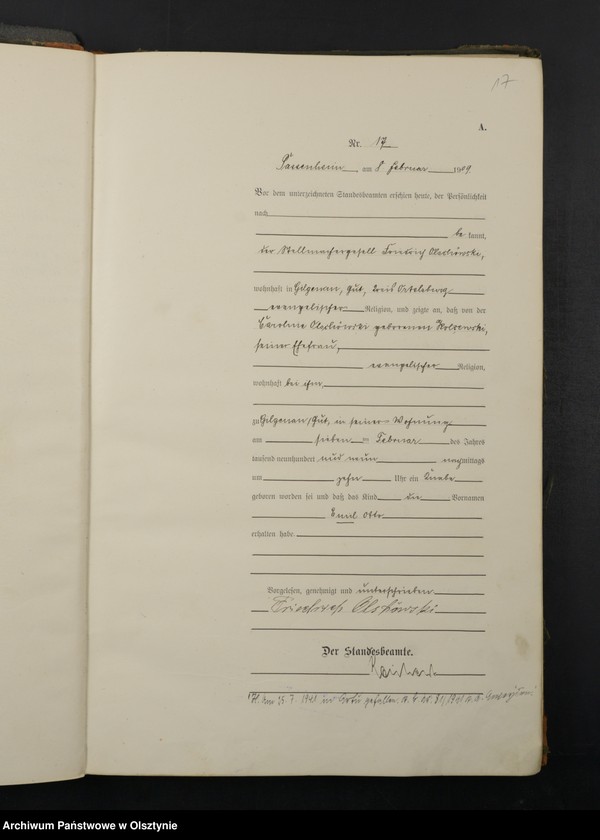 17
A.
Nr. 17
Passenheim, am 8. Februar 1909.
Vor dem unterzeichneten Standesbeamten erschien heute, der Persönlichkeit
nach
be kannt,
der Stellmachergesell Friedrich
wohnhaft in Gilgenau, Gut, Kreis Ortelsburg
evangelischer Religion, und zeigte an, daß von der
Caroline geborenen
seiner Ehefrau,
evangelischer Religion,
wohnhaft bei ihm,
zu Gilgenau, Gut, in seiner Wohnung
am sieben ten Februar des Jahres
tausend neunhundert und neun nachmittags
um zehn Uhr ein Knabe
geboren worden sei und daß das Kind die Vornamen
Emil Otto
erhalten habe
Vorgelesen, genehmigt und unterschrieben
Friedrich
Der Standesbeamte.
1941 gefallen
Archiwum Państwowe w Olsztynie